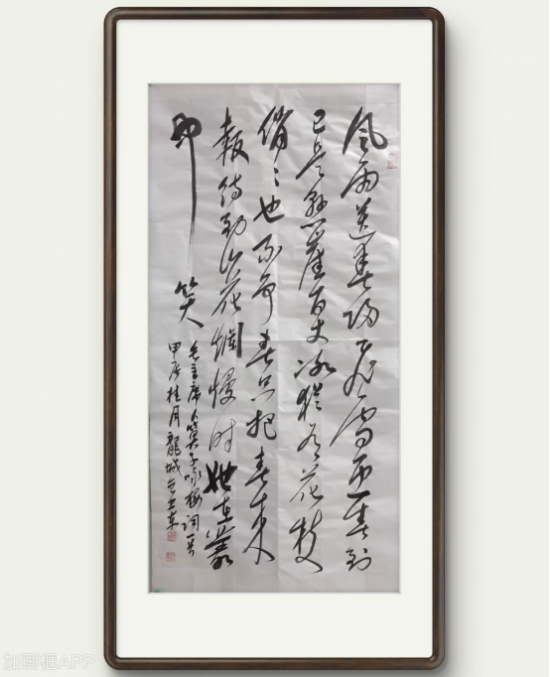 風雨送春归飛雪迎春到
已是懸崖百丈冰猶有花枝
俏〻也不争春只把春来
報待到山花爛慢时她在叢
中 笑
毛主席卜算子咏梅词一首
甲辰桂月龍城
加画框APP